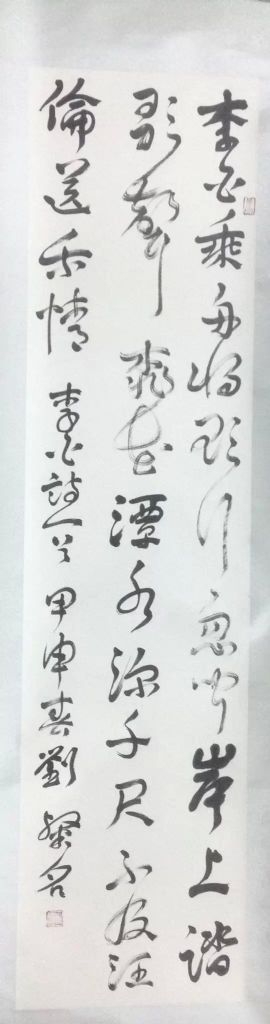 李白乘舟將欲行忽聞岸上踏
歌聲桃花潭水深千尺不及汪
倫送我情 李白詩一首 甲申春劉名